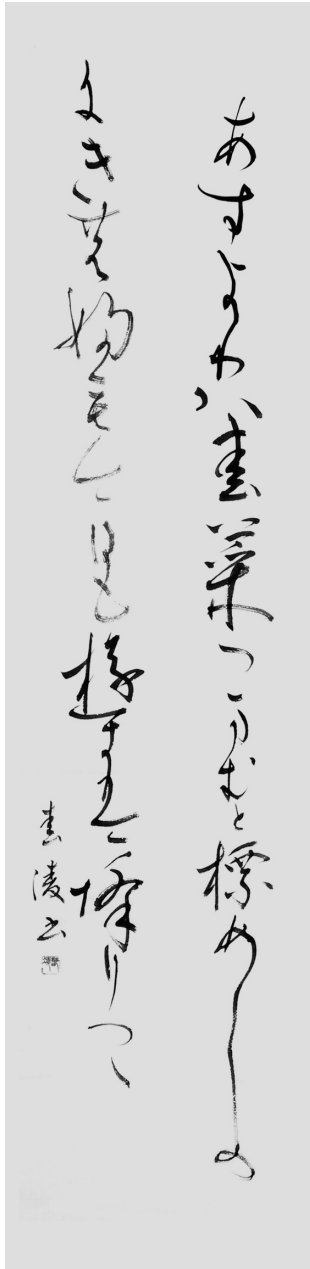 あすよりハ春菜つまむと標めしの
にきのふもけふもゆきは降りつゝ
春凌書